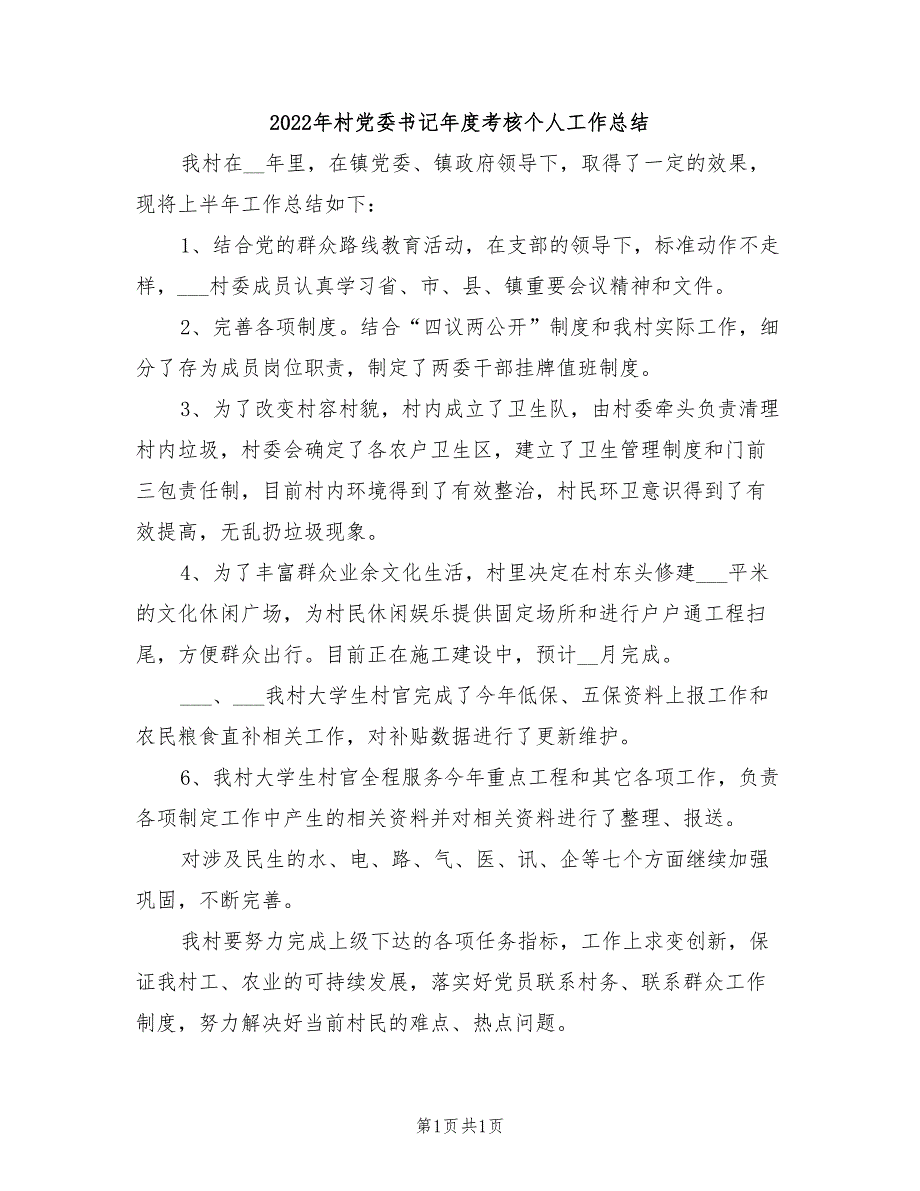 2022年村党委书记年度考核个人工作总结
我村在__年里，在镇党委、镇政府领导下，取得了一定的效果，
现将上半年工作总结如下：
1、结合党的群众路线教育活动，在支部的领导下，标准动作不走
样，___村委成员认真学习省、市、县、镇重要会议精神和文件。
2、完善各项制度。结合“四议两公开”制度和我村实际工作，细
分了存为成员岗位职责，制定了两委干部挂牌值班制度。
3、为了改变村容村貌，村内成立了卫生队，由村委牵头负责清理
村内垃圾，村委会确定了各农户卫生区，建立了卫生管理制度和门前
三包责任制，目前村内环境得到了有效整治，村民环卫意识得到了有
效提高，无乱扔垃圾现象。
4、为了丰富群众业余文化生活，村里决定在村东头修建___平米
的文化休闲广场，为村民休闲娱乐提供固定场所和进行户户通工程扫
尾，方便群众出行。目前正在施工建设中，预计__月完成。
___、___我村大学生村官完成了今年低保、五保资料上报工作和
农民粮食直补相关工作，对补贴数据进行了更新维护。
6、我村大学生村官全程服务今年重点工程和其它各项工作，负责
各项制定工作中产生的相关资料并对相关资料进行了整理、报送。
对涉及民生的水、电、路、气、医、讯、企等七个方面继续加强
巩固，不断完善。
我村要努力完成上级下达的各项任务指标，工作上求变创新，保
证我村工、农业的可持续发展，落实好党员联系村务、联系群众工作
制度，努力解决好当前村民的难点、热点问题。
第1页共1页